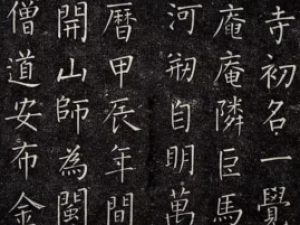 寺初名一覺
庵庵隣巨馬
河剏自明萬
曆甲辰年間
開山師為閩
僧道安布金